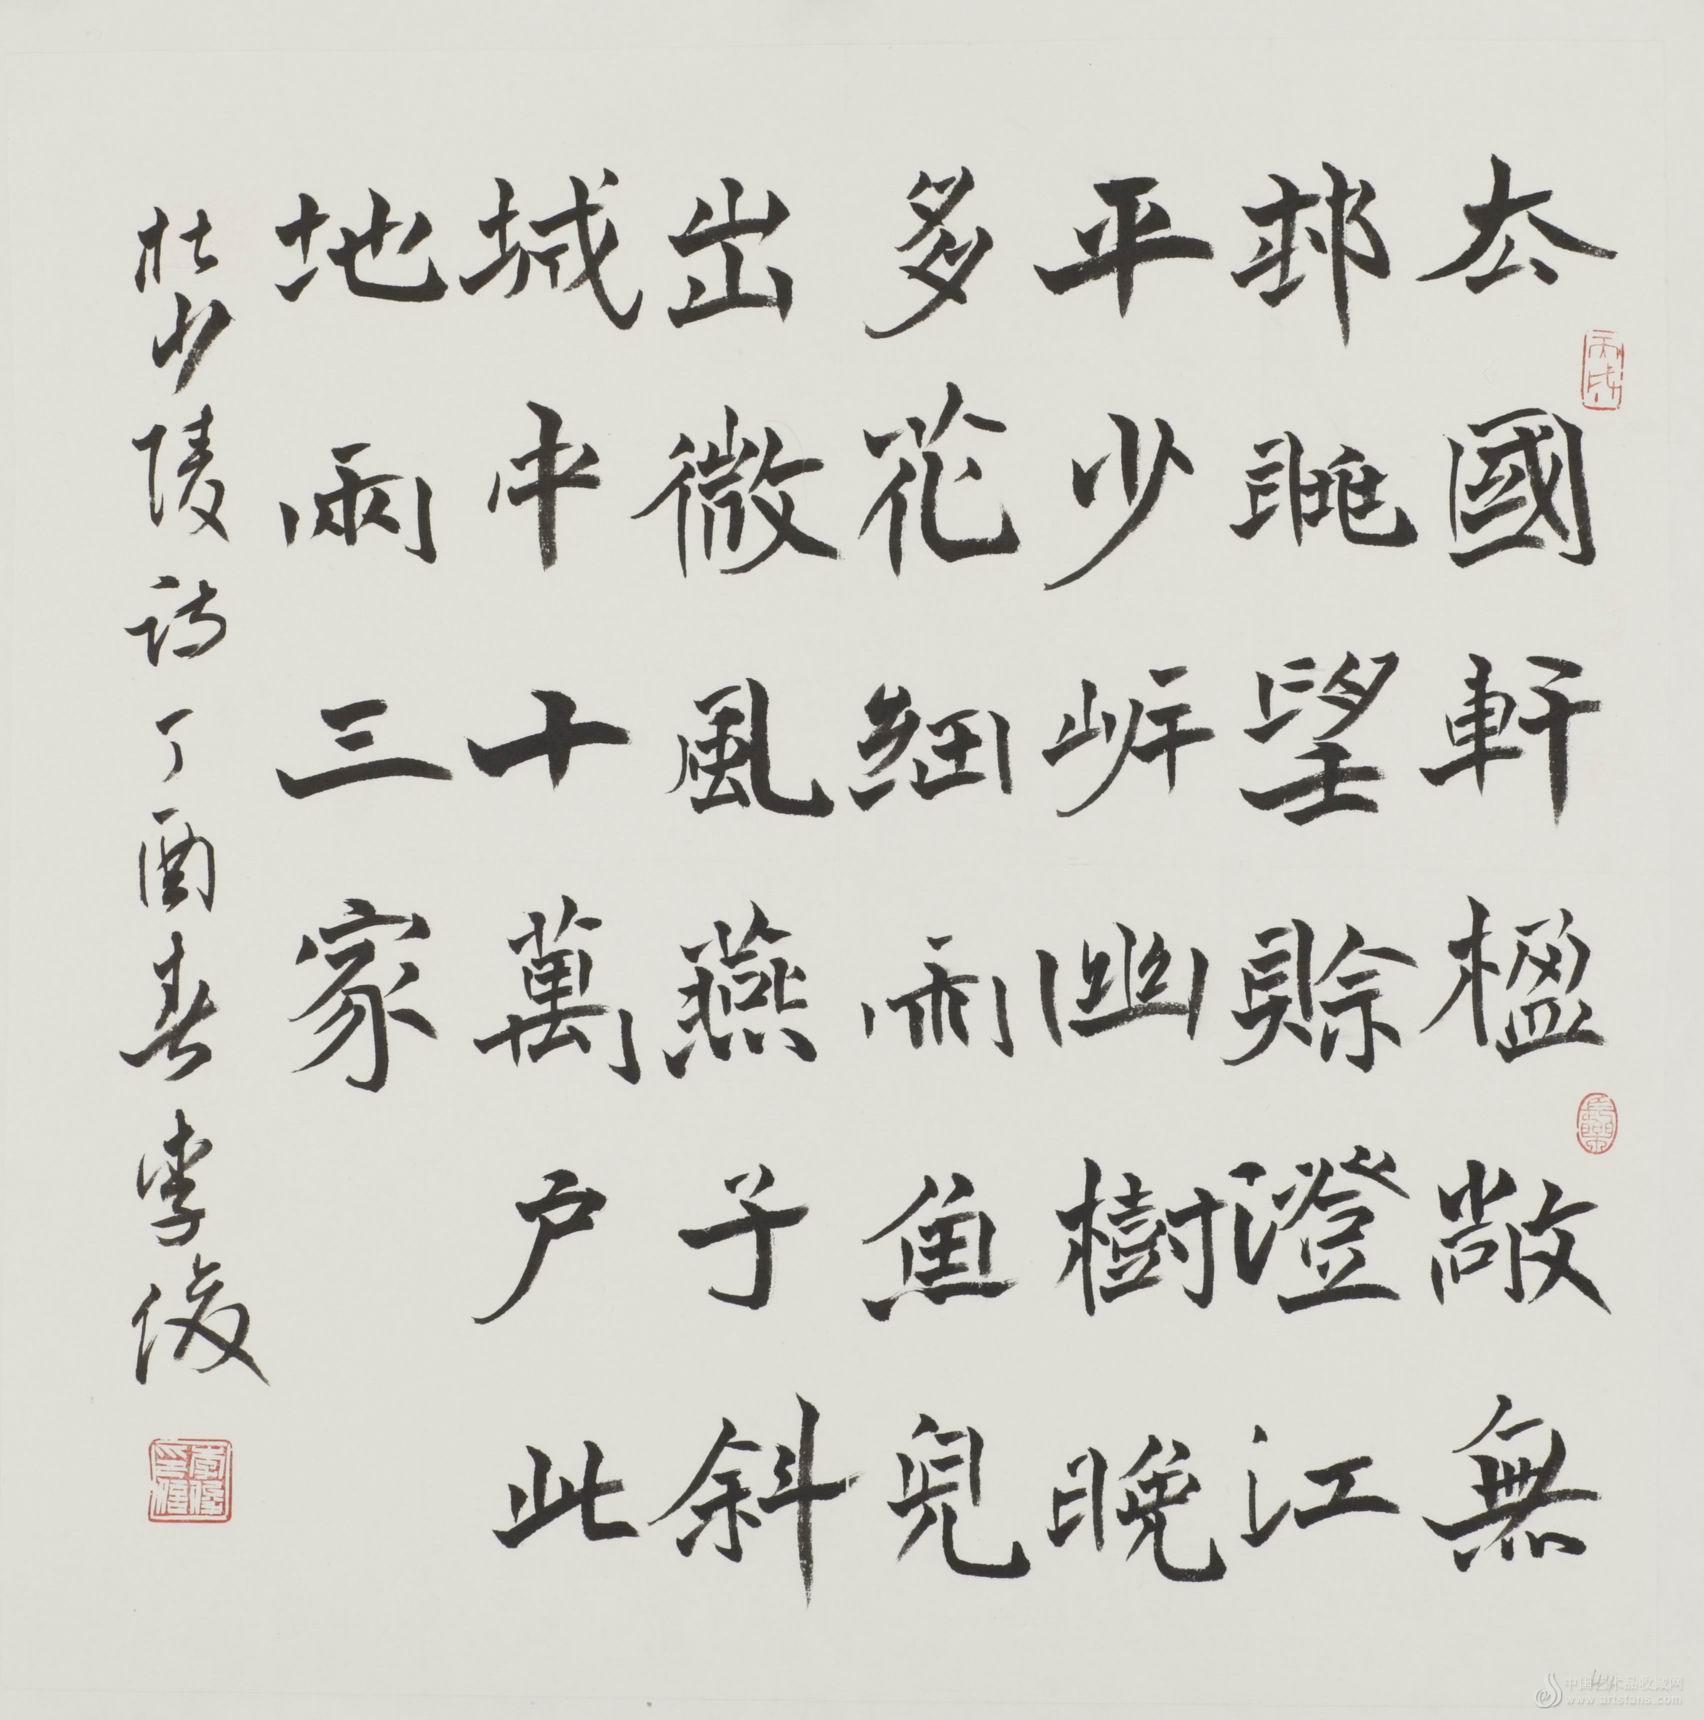 去國軒楹敞無
邨眺望賒澄江
平少岸幽樹晚
多花細雨魚兒
出微風燕子斜
城中十萬户此
地兩三家
杜少陵詩丁酉春李俊
長樂
中国艺术品收藏网
www.artsfans.com